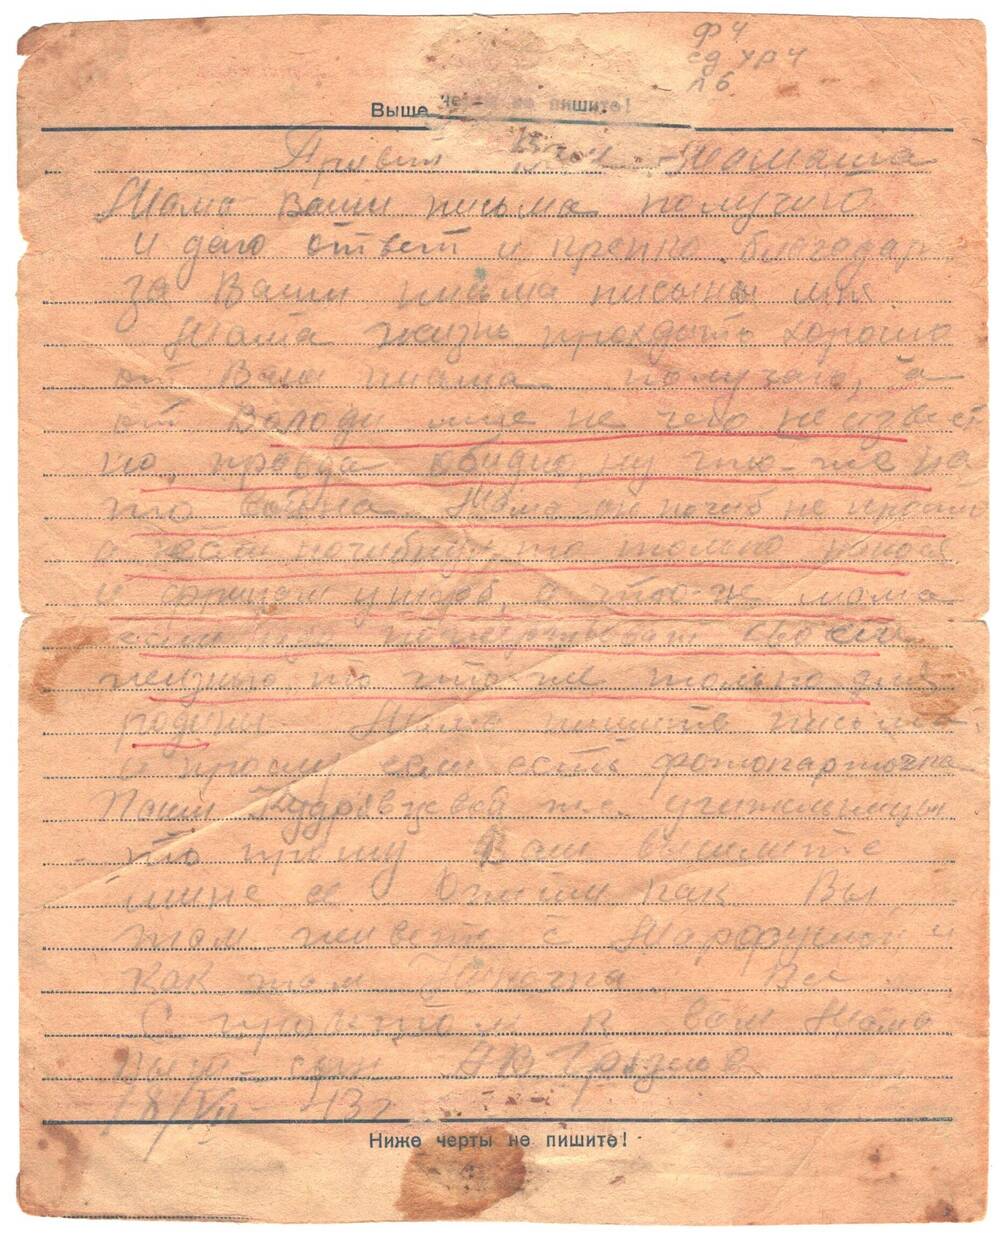 Ф 4
ед хр 4
л 6
Выше черты не пишите!
Привет Мамаша
Мама Ваши письма получию
и даю ответ и крепко благодар
за Ваши письма писыны мня
Мама жизнь проходить хорошо
от Васа письма получаю, а
от Володи мне не чего не извест
но, правда обидно, ну что-же на
то война. Мама он погиб не просто
а если погибнул, то только нанося
и фрицам ущерб, а что-же мама
если
жизнью, то что же только для
родины Мама пишите письма
и прошу если есть фотокарточка
Паши Кудрявцевой т.е. учительницы
то прошу Вам вышлите
мине ее Опиши как Вы
там живете с Марфушой и
как там Все
С приветом к вам Мама
Ваш сын
18/VII-43 г
Ниже черты не пишите!